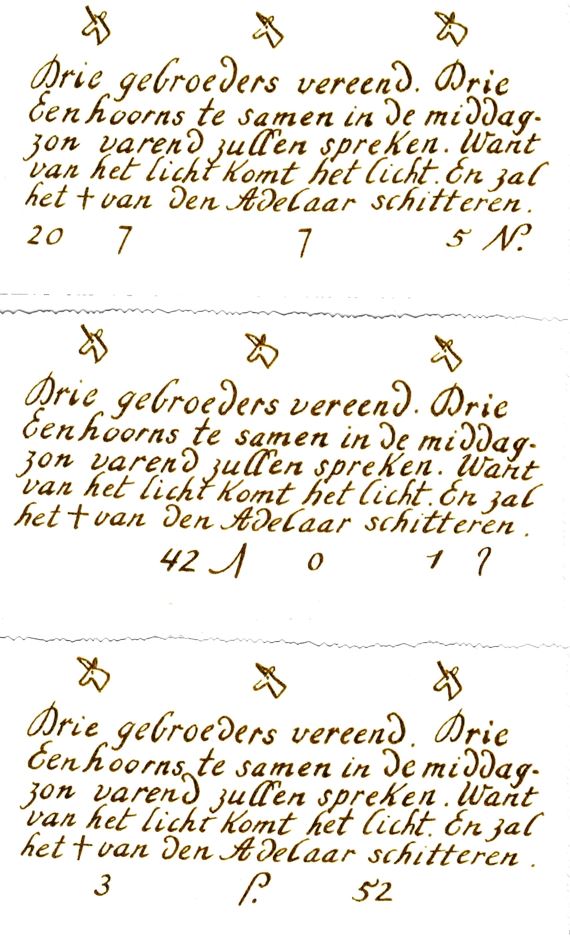 Drie gebroeders vereend. Drie
Eenhoorns te samen in de middag-
zon varend zullen spreken. Want
van het licht komt het licht. En zal
het † van den Adelaar schitteren.
20 7 7 5 N.
Drie gebroeders vereend. Drie
Eenhoorns te samen in de middag-
zon varend zullen spreken. Want
van het licht komt het licht. En zal
het † van den Adelaar schitteren.
42 0 1
Drie gebroeders vereend. Drie
Eenhoorns te samen in de middag-
zon varend zullen spreken. Want
van het licht komt het licht. En zal
het † van den Adelaar schitteren.
3 52